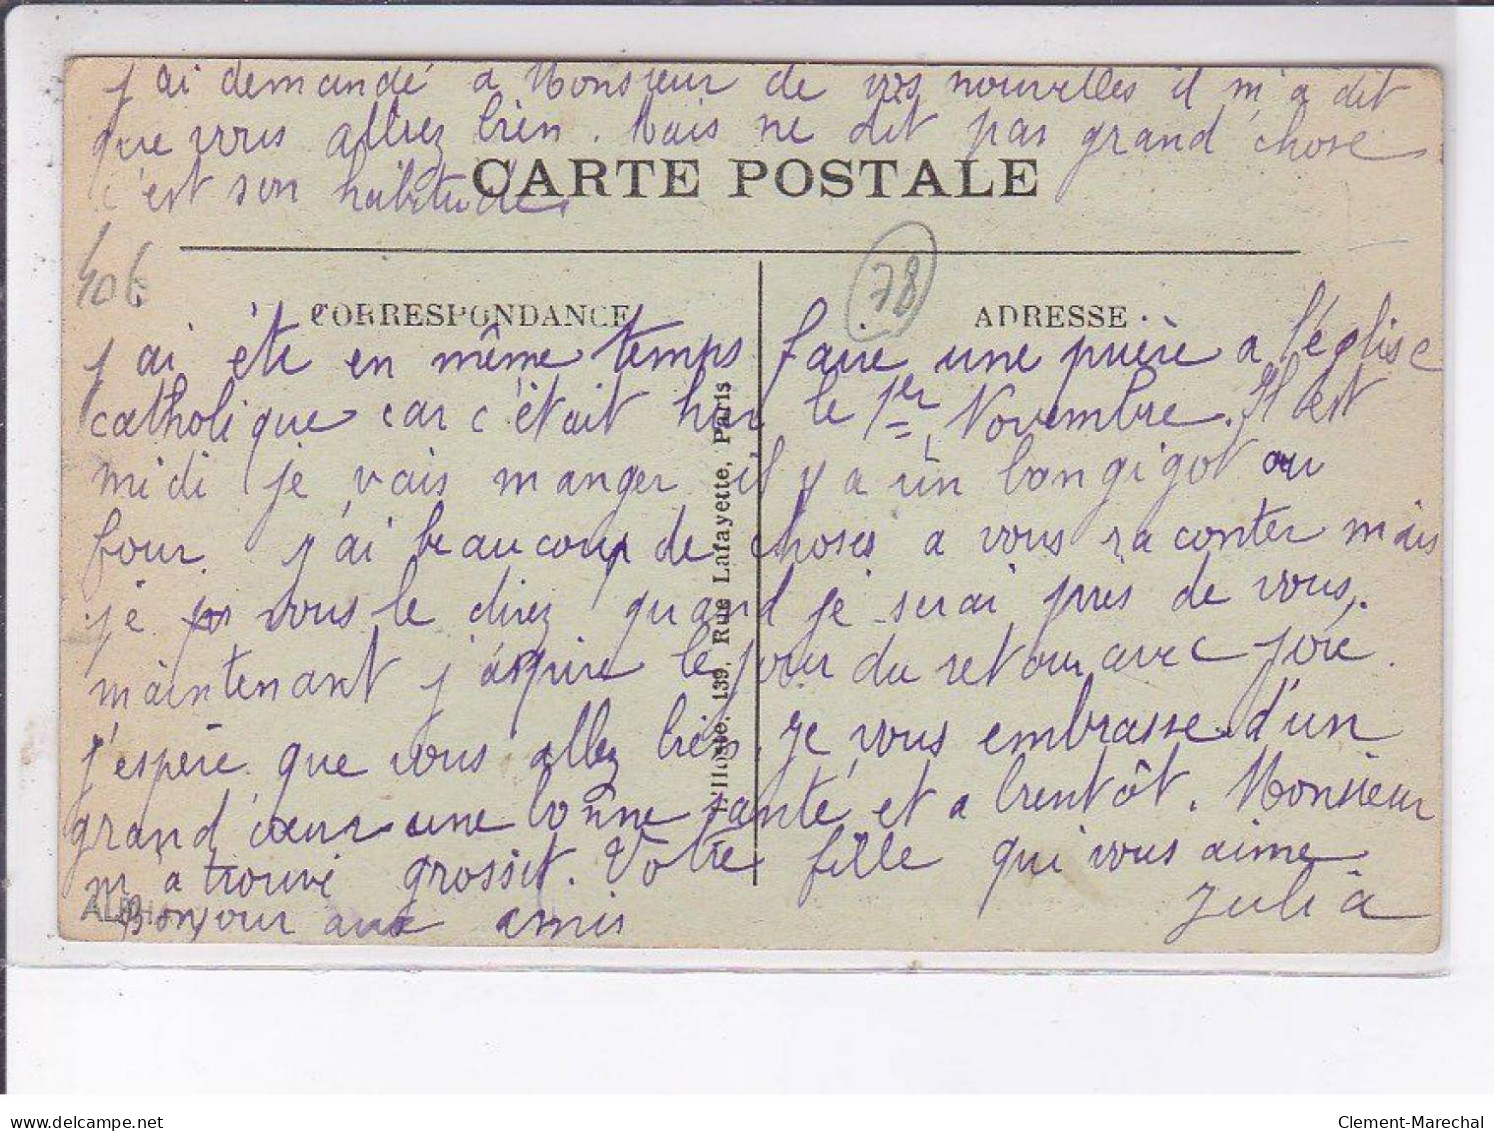 j'ai demandé a Monsieur de vos nouvelles il m'a dit
que vous alliez bien. Mais ne dit pas grand chose
c'est son habitude.
CARTE POSTALE
406
78
CORRESPONDANCE
ADRESSE
j'ai été en même temps faire une prière a l'église
catholique car c'était hier le 1er Novembre. Il est
midi je vais manger il y a un bon gigot au
four. j'ai beaucoup de choses a vous raconter mais
je vous le direz quand je serai près de vous.
maintenant j'aspire le jour du retour avec joie.
j'espère que vous allez bien. Je vous embrasse d'un
grand cœur une bonne santé et a bientôt. Monsieur
m'a trouvé grossit. Votre fille qui vous aime
Julia
Bonjour aux amis
139, Rue Lafayette, Paris
delcampe.net
Clement-Marechal